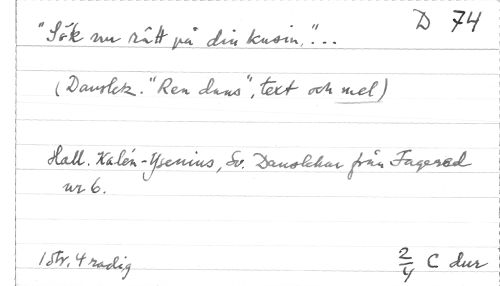 D 74
"Sök nu rätt på din kusin,"...
(Danslek. "Ren dans", text och mel)
Hall. Kalén-Ysenius, Sv. Danslekar från Fagered
nr 6.
1 str, 4 radig
2/4 C dur